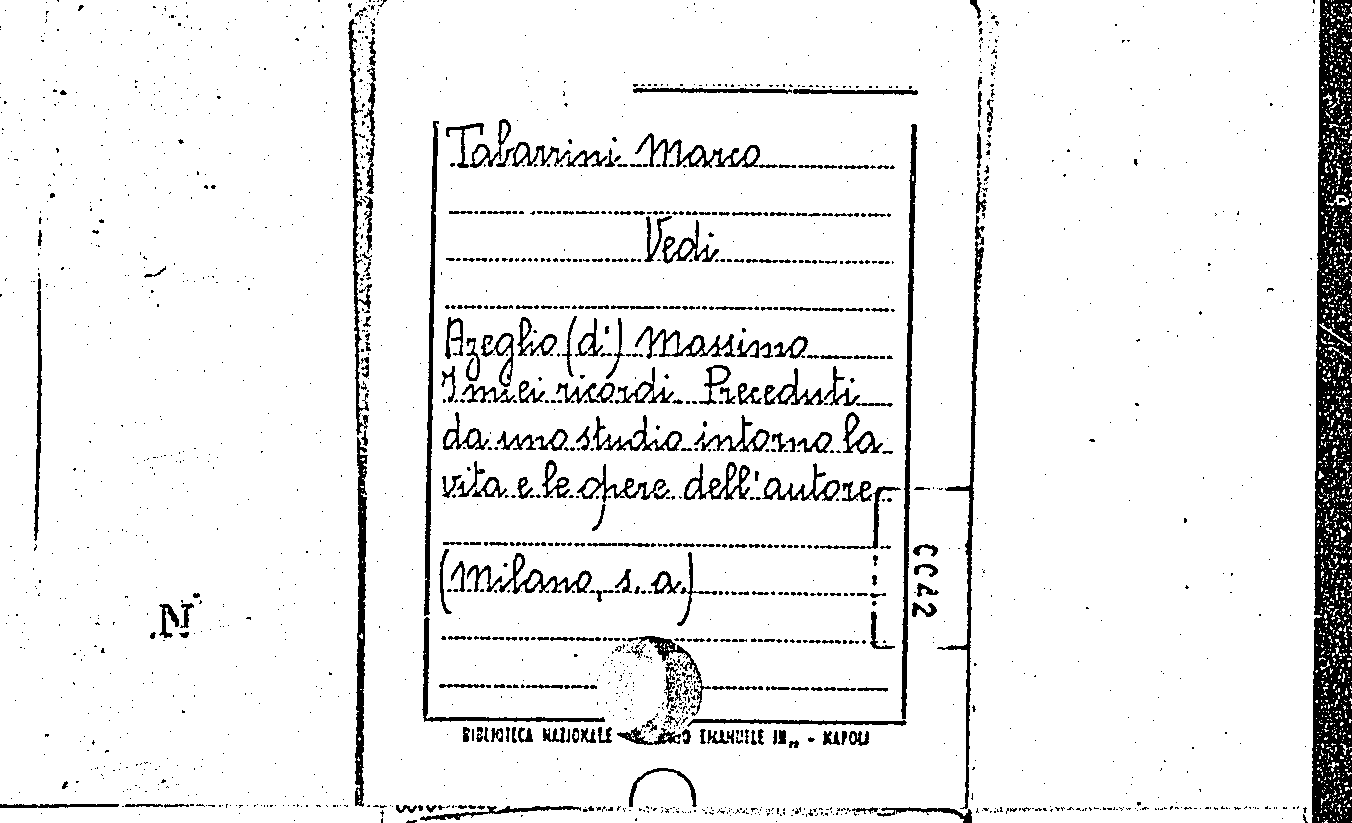 Tabarrini Marco
Vedi
Azeglio (d') Massimo
I miei ricordi. Preceduti
da uno studio intorno la
vita e le opere dell'autore.
(Milano, s. a.)
CC42
N
BIBLIOTECA NAZIONALE EMANUELE III,, - NAPOLI